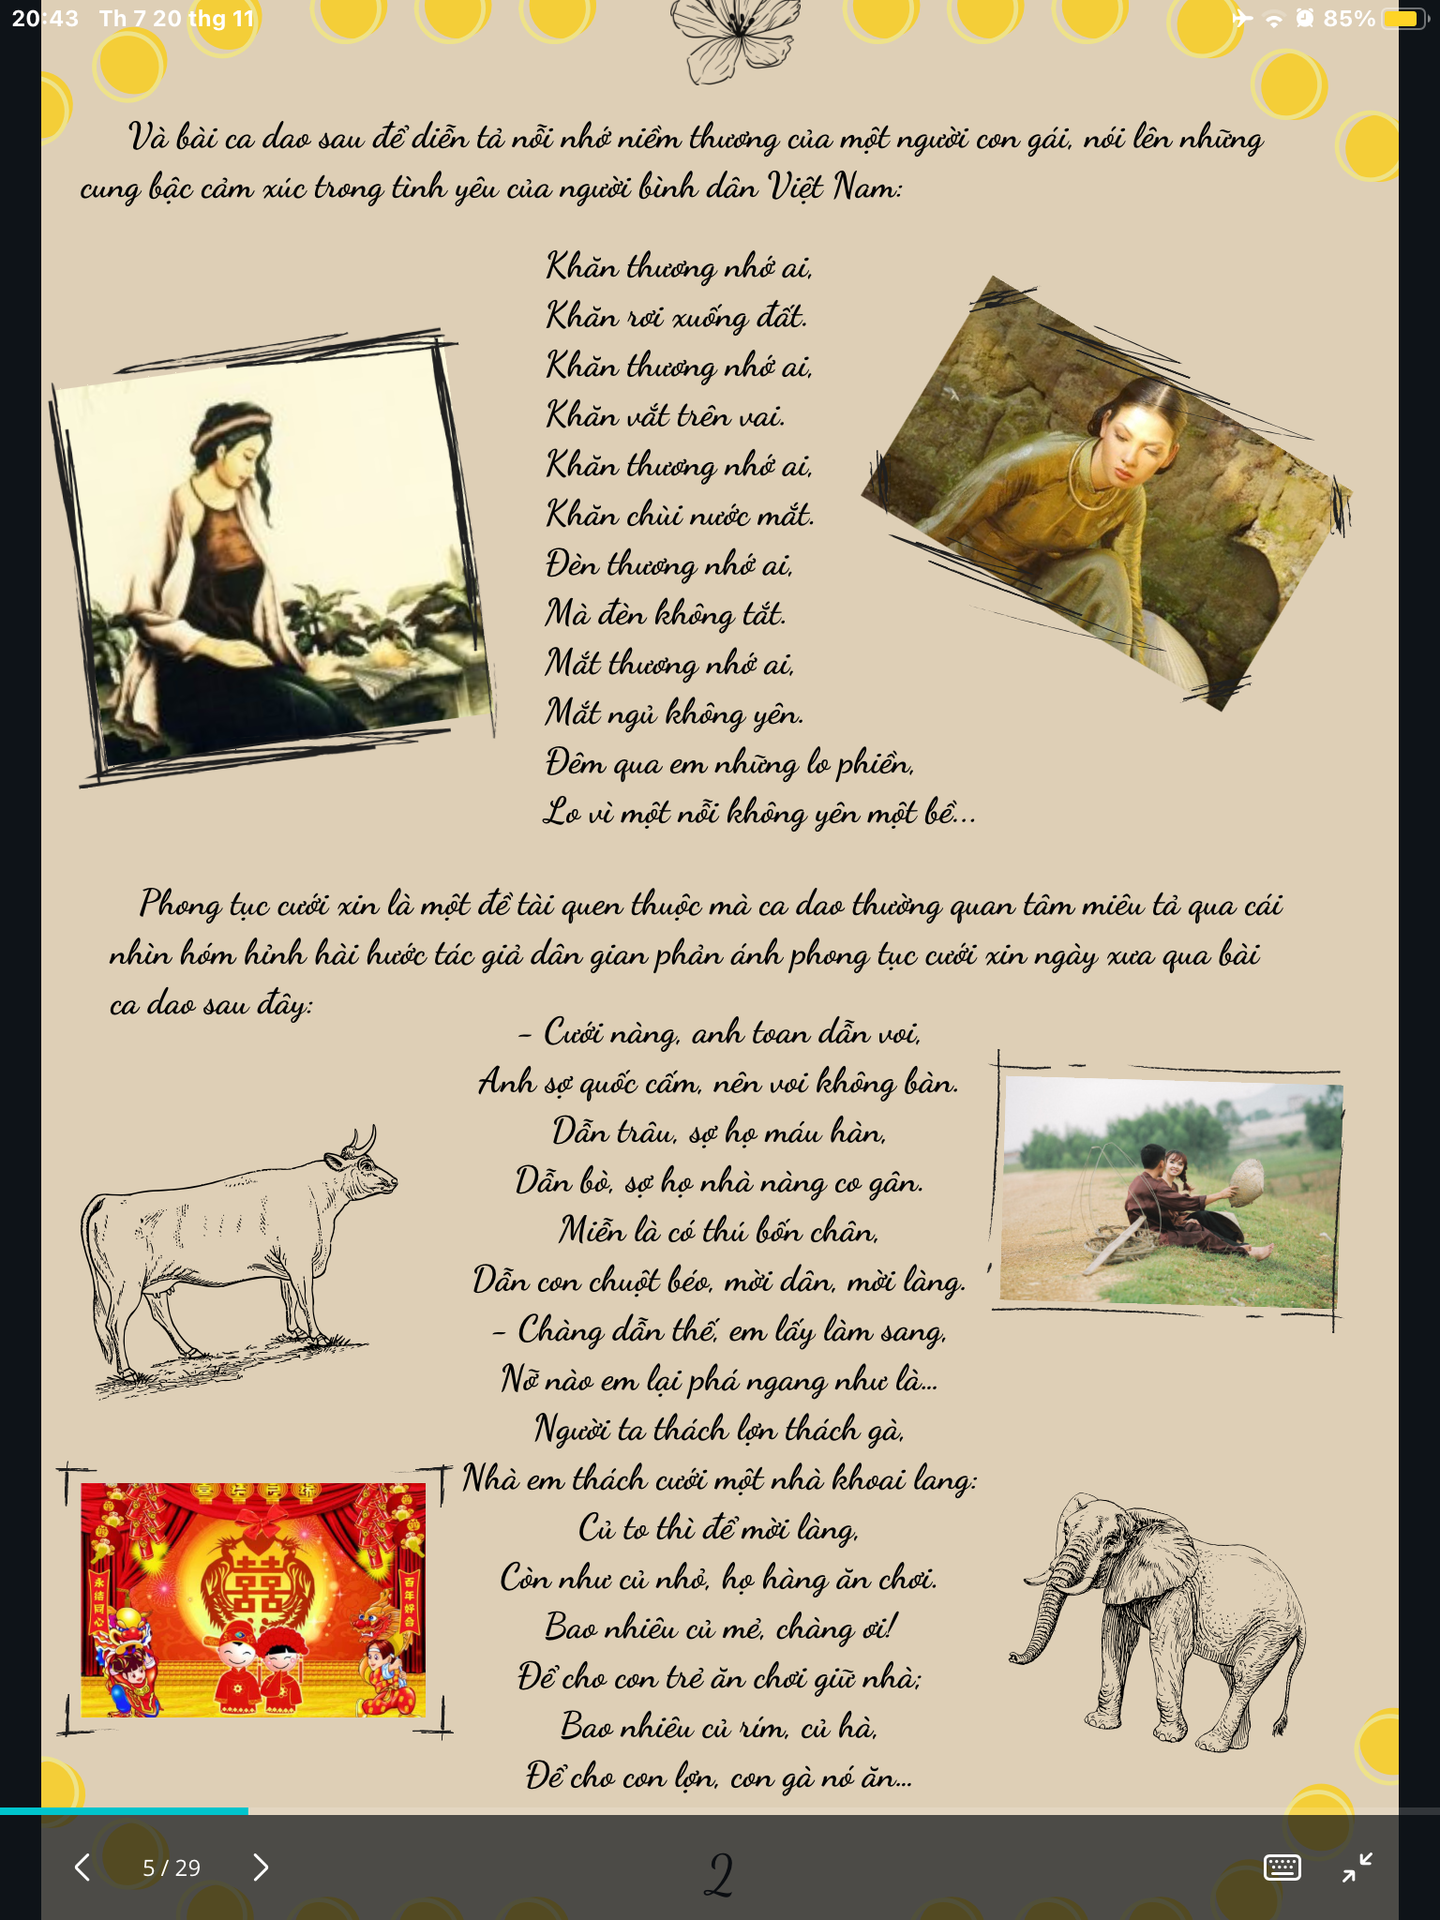 20:43 Th 7 20 thg 11
85%
Và bài ca dao sau để diễn tả nỗi nhớ niềm thương của một người con gái, nói lên những
cung bậc cảm xúc trong tình yêu của người bình dân Việt Nam:
Khăn thương nhớ ai,
Khăn rơi xuống đất.
Khăn thương nhớ ai,
Khăn vắt trên vai.
Khăn thương nhớ ai,
Khăn chùi nước mắt.
Đèn thương nhớ ai,
Mà đèn không tắt.
Mắt thương nhớ ai,
Mắt ngủ không yên.
Đêm qua em những lo phiền,
Lo vì một nỗi không yên một bề...
Phong tục cưới xin là một đề tài quen thuộc mà ca dao thường quan tâm miêu tả qua cái
nhìn hóm hỉnh hài hước tác giả dân gian phản ánh phong tục cưới xin ngày xưa qua bài
ca dao sau đây:
- Cưới nàng, anh toan dẫn voi,
Anh sợ quốc cấm, nên voi không bàn.
Dẫn trâu, sợ họ máu hàn,
Dẫn bò, sợ họ nhà nàng co gân.
Miễn là có thú bốn chân,
Dẫn con chuột béo, mời dân, mời làng.
- Chàng dẫn thế, em lấy làm sang,
Nỡ nào em lại phá ngang như là...
Người ta thách lợn thách gà,
Nhà em thách cưới một nhà khoai lang:
Củ to thì để mời làng,
Còn như củ nhỏ, họ hàng ăn chơi.
Bao nhiêu củ mẻ, chàng ơi!
Để cho con trẻ ăn chơi giữ nhà;
Bao nhiêu củ rím, củ hà,
Để cho con lợn, con gà nó ăn...
囍
永结同心
百年好合
5 / 29
2